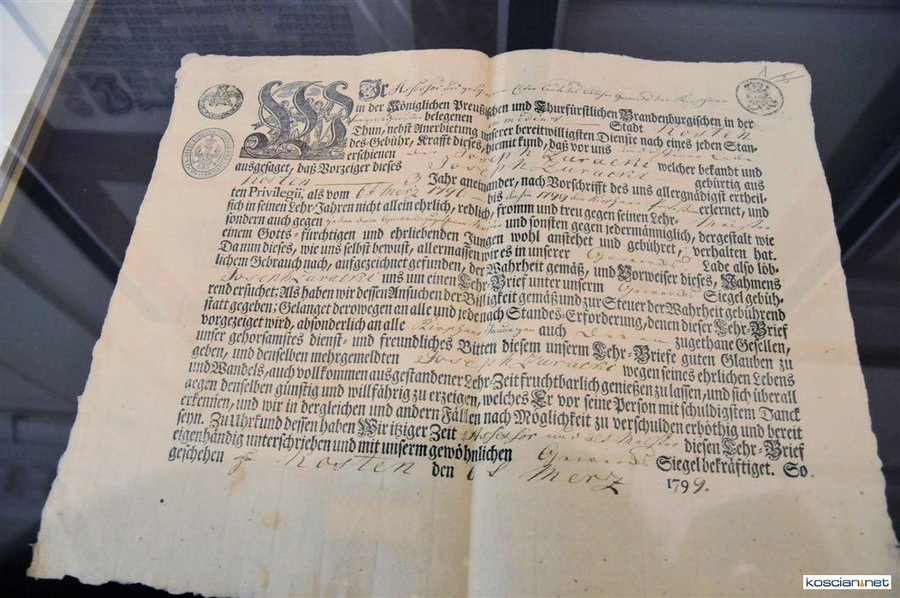 WIr Assessor
in der Königlichen Preußischen und Churfürstlichen Brandenburgischen in der
belegenen Stadt Kosten
Thun, nebst Anerbietung unserer bereitwilligsten Dienste nach eines jeden Stan-
des Gebühr, Krafft dieses, hiemit kund, daß vor uns
erschienen der Joseph Zuracki welcher bekandt und
ausgesaget, daß Vorzeiger dieses Joseph Zuracki gebürtig aus
Kosten Jahr aneinander, nach Vorschrifft des uns allergnädigst ertheil-
ten Privilegii, als vom 6t Merz 1796 bis 1799 erlernet, und
sich in seinen Lehr-Jahren nicht allein ehrlich, redlich, fromm und treu gegen seinen Lehr- Meister
sondern auch gegen und sonsten gegen jedermänniglich, dergestalt wie
einem Gotts-fürchtigen und ehrliebenden Jungen wohl anstehet und gebühret, verhalten hat.
Da nun dieses, wie uns selbst bewust, allermassen wir es in unserer Gewercks Lade also löb-
lichem Gebrauch nach, aufgezeichnet gefunden, der Wahrheit gemäß, und Vorweiser dieses, Nahmens
Joseph Zuracki uns um einen Lehr-Brief unter unserm Gewercks Siegel gebüh-
rend ersuchet; Als haben wir dessen Ansuchen der Billigkeit gemäß und zur Steuer der Wahrheit gebührend
statt gegeben; Gelanget derowegen an alle und jede nach Standes-Erforderung, denen dieser Lehr-Brief
vorgezeiget wird, absonderlich an alle auch zugethane Gesellen,
unser gehorsamstes dienst- und freundliches Bitten diesem unserm Lehr-Briefe guten Glauben zu
geben, und denselben mehrgemeldten Joseph Zuracki wegen seines ehrlichen Lebens
und Wandels, auch vollkommen ausgestandener Lehr-Zeit fruchtbarlich genießen zu lassen, und sich überall
gegen denselben günstig und willfährig zu erzeigen, welches Er vor seine Person mit schuldigstem Danck
erkennen, und wir in dergleichen und andern Fällen nach Möglichkeit zu verschulden erböthig und bereit
seyn. Zu Uhrkund dessen haben Wir itziger Zeit Assessor und alt Meister diesen Lehr-Brief
eigenhändig unterschrieben und mit unserm gewöhnlichen Gewercks Siegel bekräftiget. So
geschehen zu Kosten den 6t Merz 1799.
koscian.net